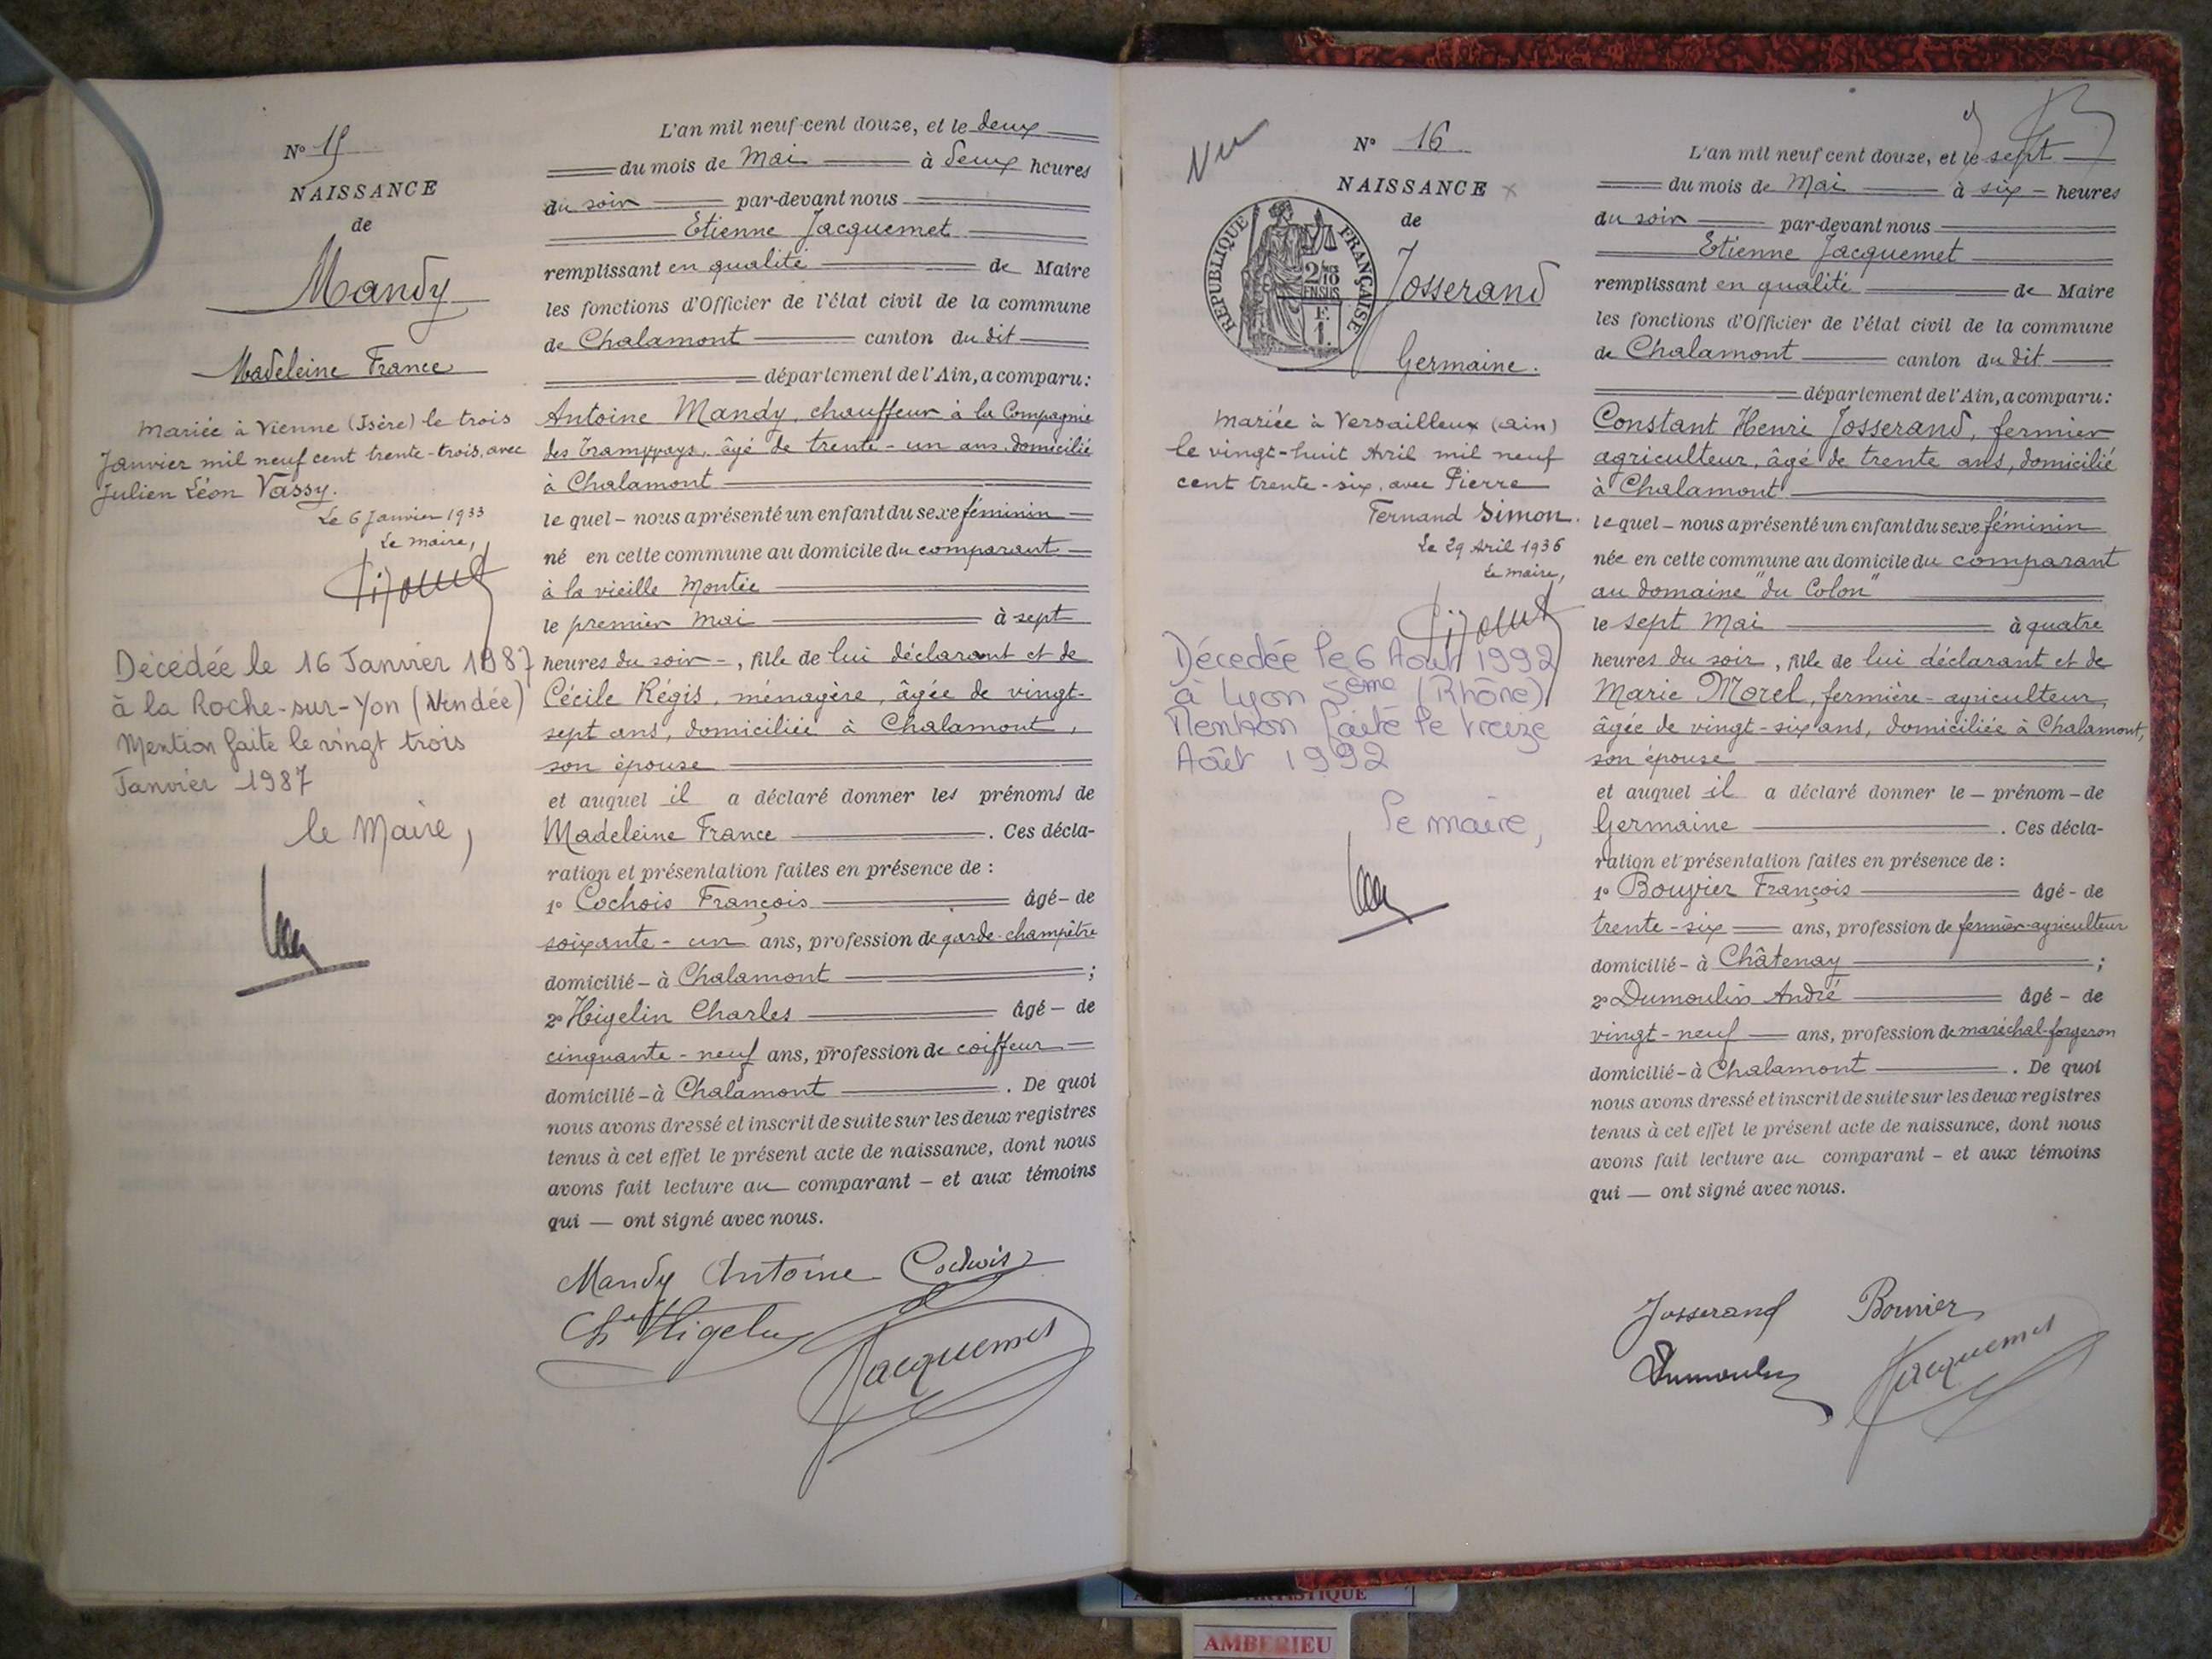 N° 15
NAISSANCE
de
Mandy
Madeleine France
Mariée à Vienne (Isère) le trois
Janvier mil neuf cent trente-trois, avec
Julien Léon Vassy.
Le 6 Janvier 1933
Le maire,
Décédée le 16 Janvier 1987
à la Roche-sur-Yon (Vendée)
Mention faite le vingt trois
Janvier 1987
le Maire,
L'an mil neuf cent douze, et le deux
du mois de Mai à deux heures
du soir par-devant nous
Etienne Jacquemet
remplissant en qualité de Maire
les fonctions d'Officier de l'état civil de la commune
de Chalamont canton du dit
département de l'Ain, a comparu:
Antoine Mandy, chauffeur à la Compagnie
des Tramways, âgé de trente-un ans, domicilié
à Chalamont
le quel - nous a présenté un enfant du sexe féminin
né en cette commune au domicile du comparant
à la vieille Montée
le premier Mai à sept
heures du soir -, fille de lui déclarant et de
Cécile Régis, ménagère, âgée de vingt-
sept ans, domiciliée à Chalamont,
son épouse
et auquel il a déclaré donner les prénoms de
Madeleine France . Ces décla-
ration et présentation faites en présence de :
1° Cochois François âgé - de
soixante - un ans, profession de garde-champêtre
domicilié - à Chalamont ;
2° Higelin Charles âgé - de
cinquante - neuf ans, profession de coiffeur
domicilié - à Chalamont . De quoi
nous avons dressé et inscrit de suite sur les deux registres
tenus à cet effet le présent acte de naissance, dont nous
avons fait lecture au comparant - et aux témoins
qui — ont signé avec nous.
Mandy Antoine Cochois
Ch Higelin
Jacquemet
Nu
N° 16
NAISSANCE x
de
RÉPUBLIQUE FRANÇAISE
2/10
EN SUS
F.
1.
Josserand
Germaine.
Mariée à Versailleux (Ain)
le vingt-huit Avril mil neuf
cent trente-six, avec Pierre
Fernand Simon.
Le 29 Avril 1936
Le maire,
Décédée le 6 Août 1992
à Lyon 5ème (Rhône)
Mention faite le treize
Août 1992
Le maire,
L'an mil neuf cent douze, et le sept
du mois de Mai à six - heures
du soir par-devant nous
Etienne Jacquemet
remplissant en qualité de Maire
les fonctions d'Officier de l'état civil de la commune
de Chalamont canton du dit
département de l'Ain, a comparu:
Constant Henri Josserand, fermier
agriculteur, âgé de trente ans, domicilié
à Chalamont
le quel - nous a présenté un enfant du sexe féminin
née en cette commune au domicile du comparant
au domaine "du Colon"
le sept Mai à quatre
heures du soir, fille de lui déclarant et de
Marie Morel, fermière-agriculteur,
âgée de vingt-six ans, domiciliée à Chalamont,
son épouse
et auquel il a déclaré donner le - prénom - de
Germaine . Ces décla-
ration et présentation faites en présence de :
1° Bouvier François âgé - de
trente - six ans, profession de fermier-agriculteur
domicilié - à Châtenay ;
2° Dumoulin André âgé - de
vingt - neuf ans, profession de maréchal-forgeron
domicilié - à Chalamont . De quoi
nous avons dressé et inscrit de suite sur les deux registres
tenus à cet effet le présent acte de naissance, dont nous
avons fait lecture au comparant - et aux témoins
qui — ont signé avec nous.
Josserand Bouvier
Dumoulin Jacquemet
AMBERIEU